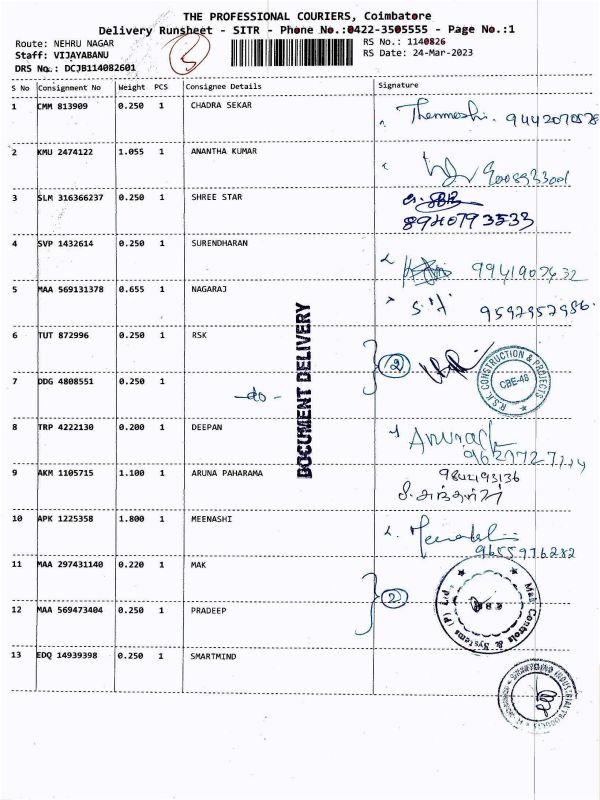 THE PROFESSIONAL COURIERS, Coimbatore
Delivery Runsheet - SITR - Phone No.:0422-3505555 - Page No.:1
Route: NEHRU NAGAR
RS No.: 1140826
Staff: VIJAYABANU
RS Date: 24-Mar-2023
DRS No.: DCJB114082601
5
S No Consignment No Weight PCS Consignee Details Signature
1 CMM 813909 0.250 1 CHADRA SEKAR
2 KMU 2474122 1.055 1 ANANTHA KUMAR
3 SLM 316366237 0.250 1 SHREE STAR
8940793533
4 SVP 1432614 0.250 1 SURENDHARAN
5 MAA 569131378 0.655 1 NAGARAJ
9597957986.
6 TUT 872996 0.250 1 RSK
2
R.S.K CONSTRUCTION & PROJECTS
CBE-46
7 DDG 4808551 0.250 1 -do-
DOCUMENT DELIVERY
8 TRP 4222130 0.200 1 DEEPAN
9 AKM 1105715 1.100 1 ARUNA PAHARAMA
9842193136
10 APK 1225358 1.800 1 MEENASHI
Meenakshi
9655976282
11 MAA 297431140 0.220 1 MAK
2
Mak Controls & Systems (P) Ltd.,
12 MAA 569473404 0.250 1 PRADEEP
13 EDQ 14939398 0.250 1 SMARTMIND